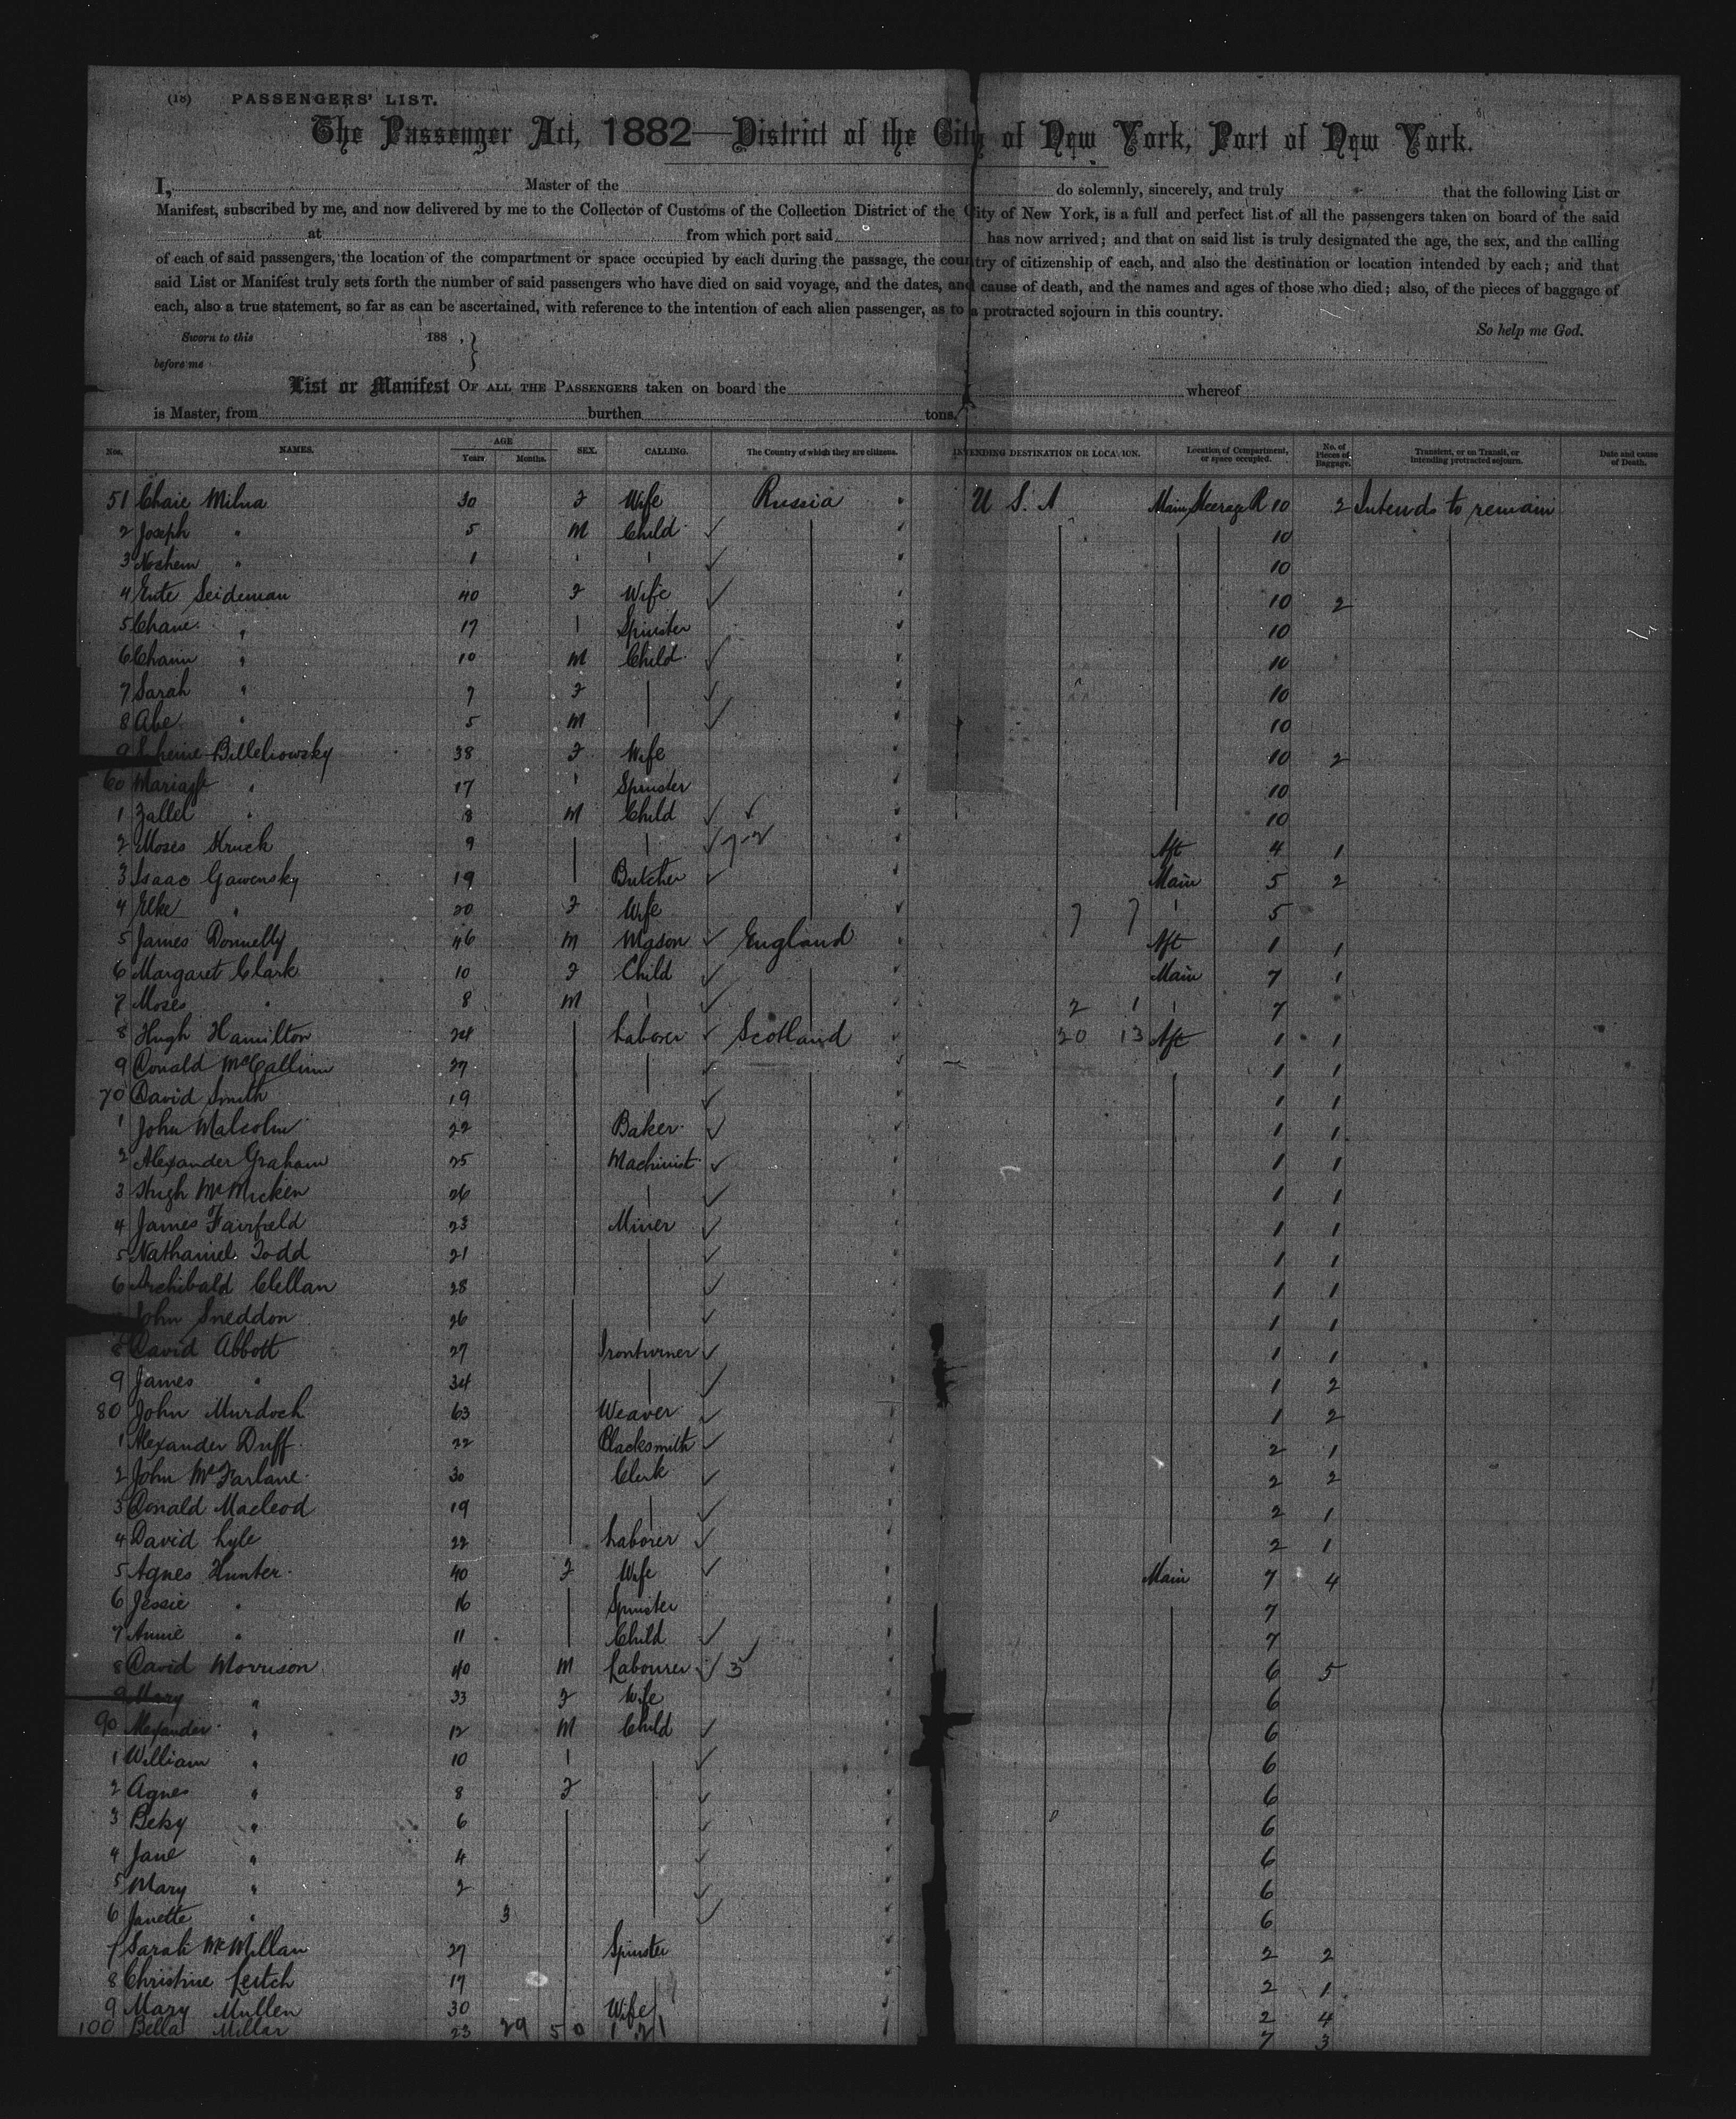 (18) PASSENGERS' LIST.
The Passenger Act, 1882—District of the City of New York, Port of New York.
I, Master of the do solemnly, sincerely, and truly that the following List or
Manifest, subscribed by me, and now delivered by me to the Collector of Customs of the Collection District of the City of New York, is a full and perfect list of all the passengers taken on board of the said
at from which port said has now arrived; and that on said list is truly designated the age, the sex, and the calling
of each of said passengers, the location of the compartment or space occupied by each during the passage, the country of citizenship of each, and also the destination or location intended by each; and that
said List or Manifest truly sets forth the number of said passengers who have died on said voyage, and the dates, and cause of death, and the names and ages of those who died; also, of the pieces of baggage of
each, also a true statement, so far as can be ascertained, with reference to the intention of each alien passenger, as to a protracted sojourn in this country.
So help me God.
Sworn to this 188 , }
before me
List or Manifest OF ALL THE PASSENGERS taken on board the whereof
is Master, from burthen tons.
Nos. NAMES. AGE Years. Months. SEX. CALLING. The Country of which they are citizens. INTENDING DESTINATION OR LOCATION. Location of Compartment, or space occupied. No. of Pieces of Baggage. Transient, or on Transit, or intending protracted sojourn. Date and cause of Death.
51 Chaie Milna 30 F Wife Russia U S. A Main Steerage R 10 2 Intends to remain
2 Joseph " 5 M Child 10
3 " 1 10
4 Ente Seideman 40 F Wife 10 2
5 Chane " 17 Spinster 10
6 Chaim " 10 M Child 10
7 Sarah " 7 F 10
8 Abe " 5 M 10
9 Billeliowsky 38 F Wife 10 2
60 " 17 Spinster 10
1 Zallel " 8 M Child 10
2 Moses Struck 9 Aft 4 1
3 Isaac Gawensky 19 Butcher Main 5 2
4 Elke " 20 F Wife 7 7 5
5 James Donnelly 46 M Mason England Aft 1 1
6 Margaret Clark 10 F Child Main 7 1
7 Moses " 8 M 2 1 7
8 Hugh Hamilton 24 Laborer Scotland 20 13 Aft 1 1
9 Donald McCallum 27 1 1
70 David Smith 19 1 1
1 John Malcolm 22 Baker 1 1
2 Alexander Graham 25 Machinist 1 1
3 Hugh McMicken 26 1 1
4 James Fairfield 23 Miner 1 1
5 Nathaniel Todd 21 1 1
6 Archibald Clellan 28 1 1
John Sneddon 26 1 1
8 David Abbott 27 Ironturner 1 1
9 James " 34 1 2
80 John Murdoch 63 Weaver 1 2
1 Alexander Duff 22 Blacksmith 2 1
2 John McFarlane 30 Clerk 2 2
3 Donald Macleod 19 2 1
4 David Lyle 22 Laborer 2 1
5 Agnes Hunter 40 F Wife Main 7 4
6 Jessie " 16 Spinster 7
7 Annie " 11 Child 7
8 David Morrison 40 M Labourer 3 6 5
9 Mary " 33 F Wife 6
90 Alexander " 12 M Child 6
1 William " 10 6
2 Agnes " 8 F 6
3 Betsy " 6 6
4 Jane " 4 6
5 Mary " 2 6
6 Janette " 3 6
7 Sarah McMillan 27 Spinster 2 2
8 Christine Leitch 17 2 1
9 Mary Mullen 30 Wife 2 4
100 Bella Millar 23 29 50 1 21 7 3